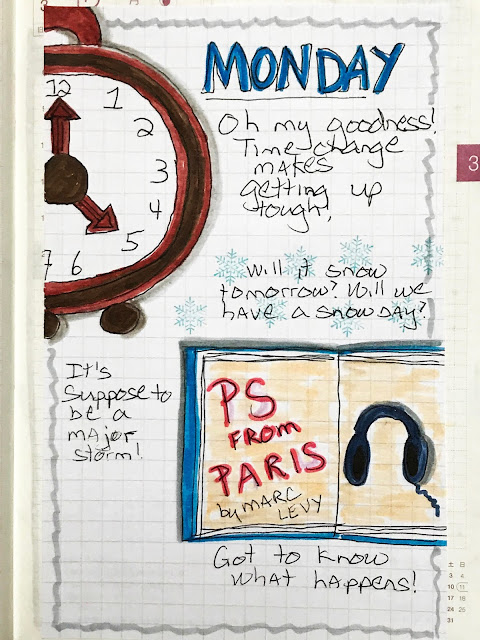 MONDAY
Oh my goodness!
Time change
makes
getting up
tough!
12
1
2
3
4
5
6
7
3
Will it snow
tomorrow? Will we
have a snow day?
It's
suppose to
be a
major
storm!
PS
FROM
PARIS
by MARC
LEVY
Got to know
what happens!
土 日
3 4
10 11
17 18
24 25
31